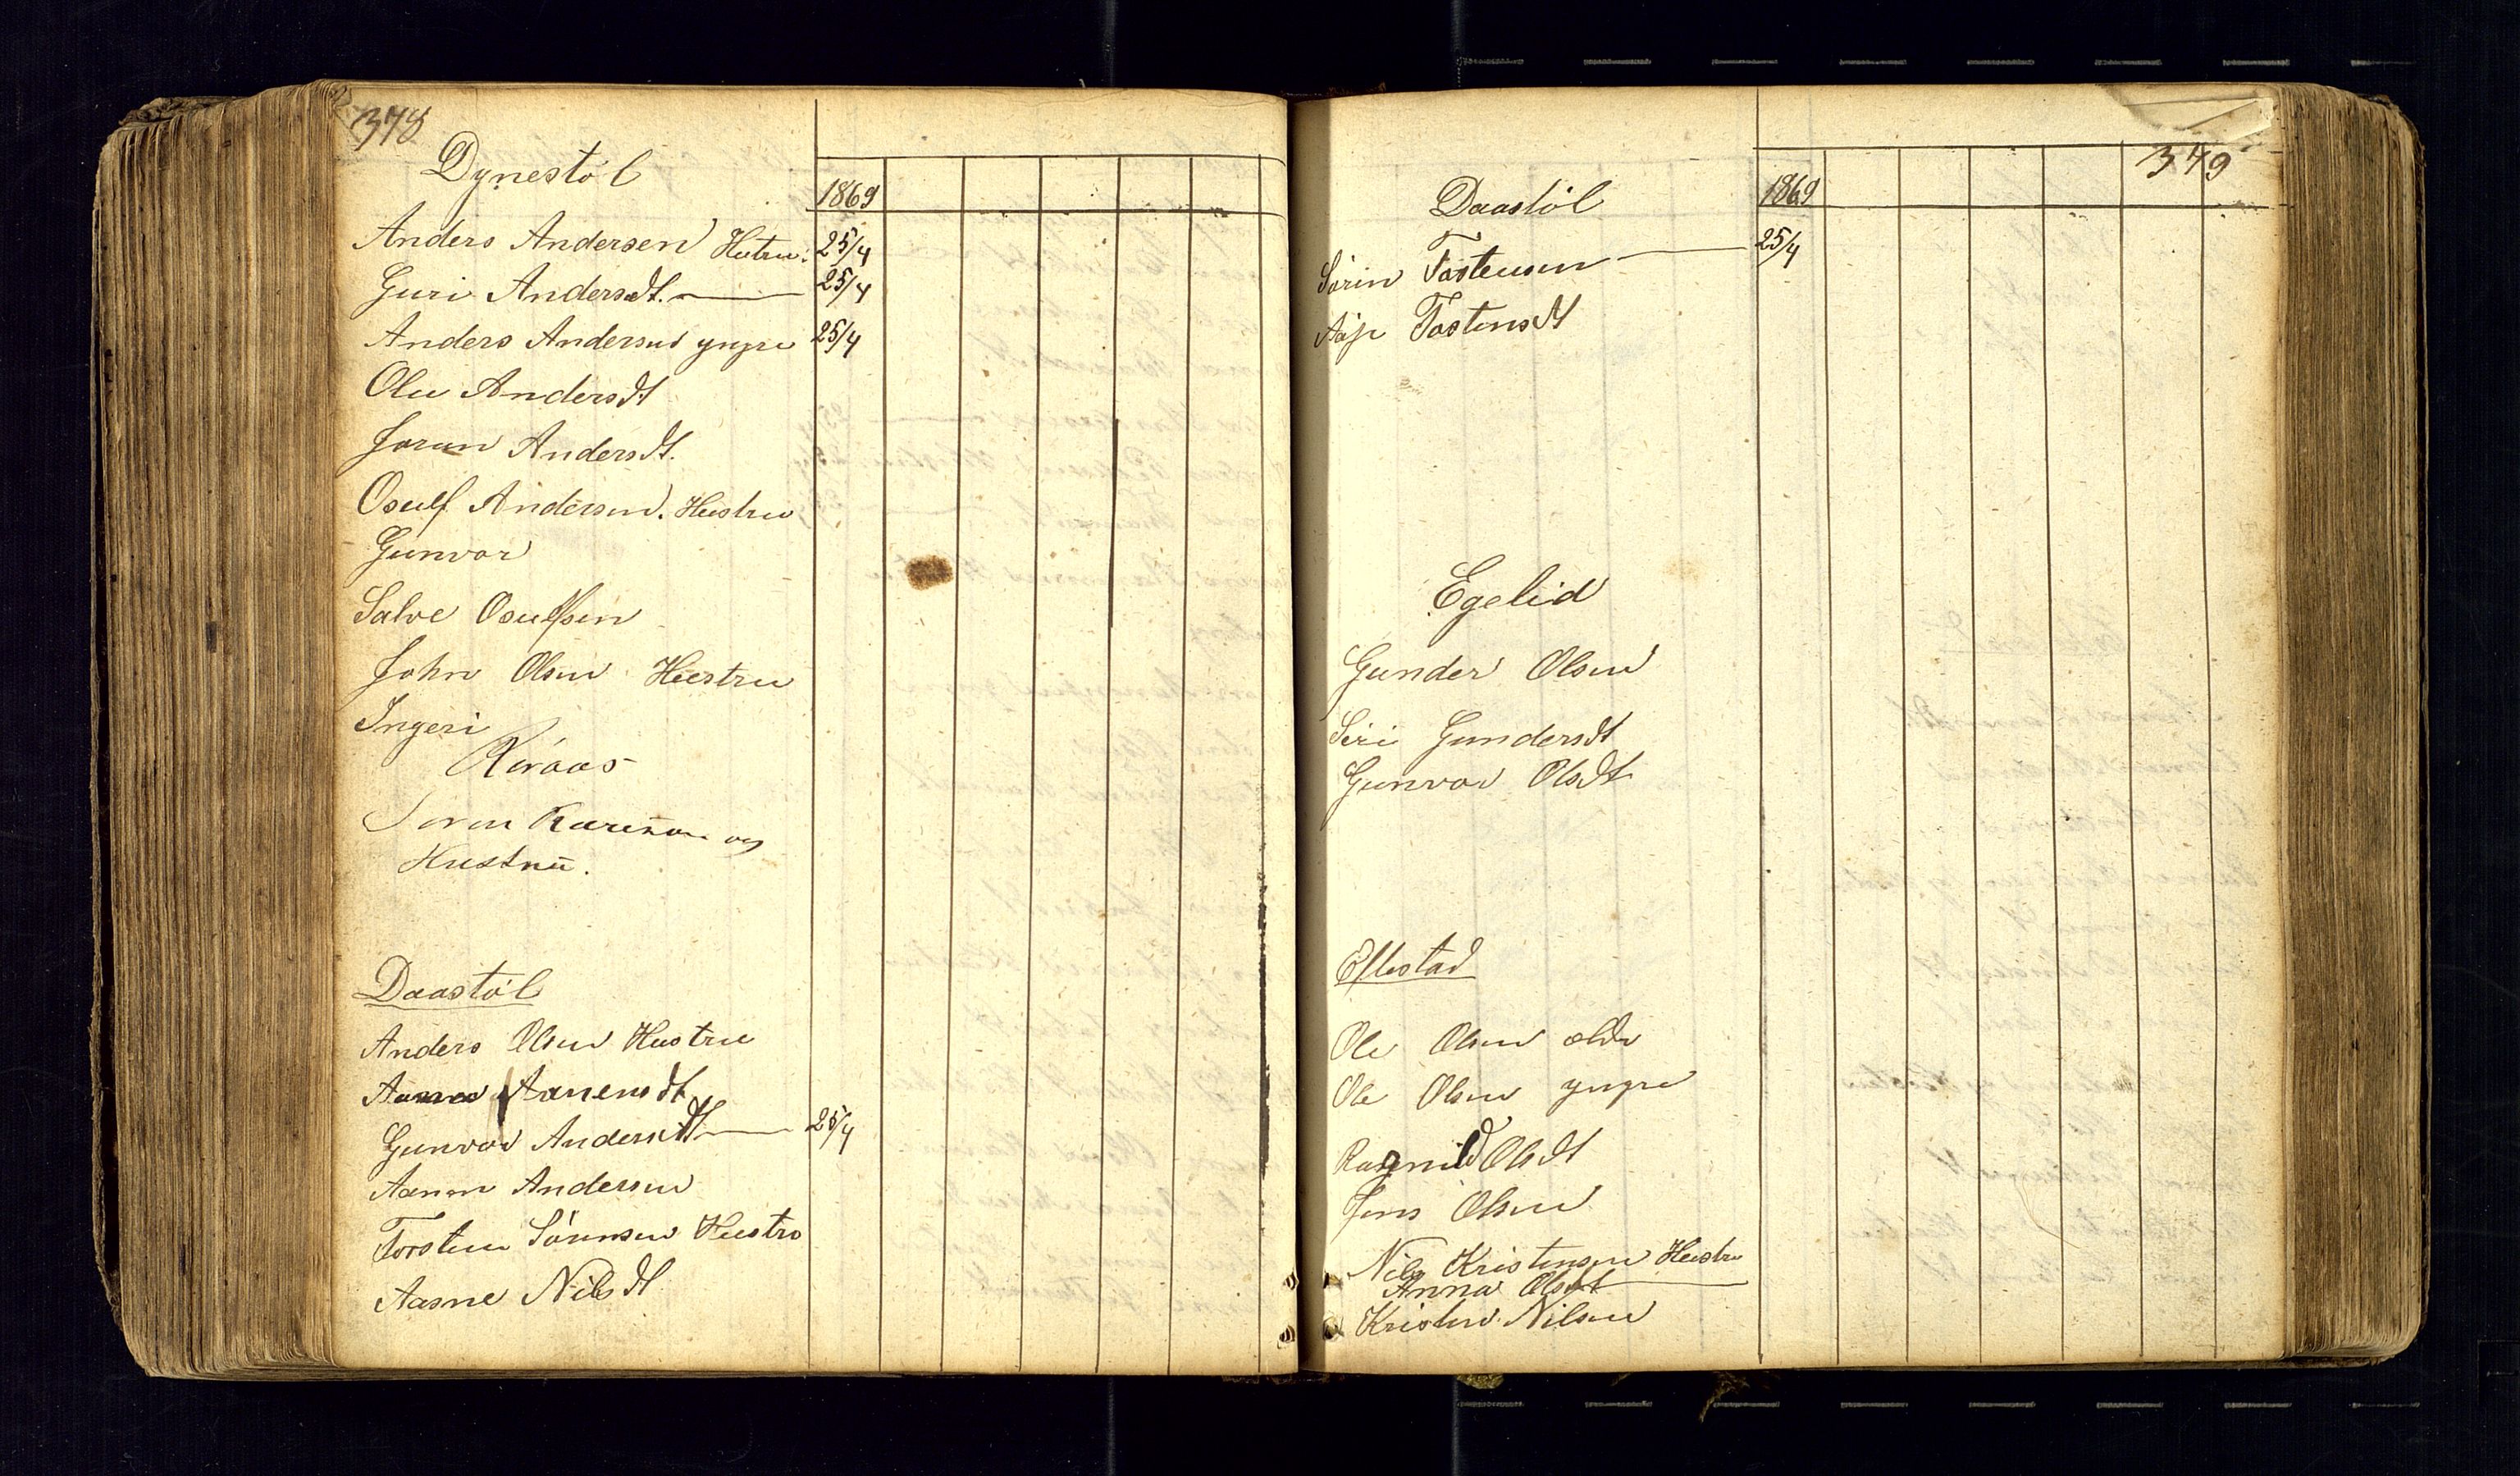 378
Dynestøl
1869
Anders Andersen Hutru: 25/4
Guri Andersdt. 25/4
Anders Andersen yngre 25/4
Olu Andersdt
Joran Andersdt.
Osulf Andersen. Hustru
Gunvor
Salve Osulfsen
John Olsen Hustru
Ingeri
Kvaas
Soren og
Hustru.
Daastøl
Anders Olsen Hustru
Aanensdt
Gunvor Andersdt 25/4
Aanen Andersen
Torsten Sørensen Hustro
Aasne Nilsdt
379
Daastøl
1869
Sørin Tostensen 25/4
Tostensdt
Egelid
Gunder Olsen
Siri Gundersdt
Gunvor Olsdt
Eftestad
Ole Olsen ældr
Ole Olsen yngre
Ragnild Olsdt
Jens Olsen
Nils Kristensen Hustru
Anna Olsdt
Kristen Nilsen